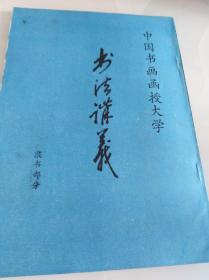 中国书画函授大学
书法讲义
隶书部分